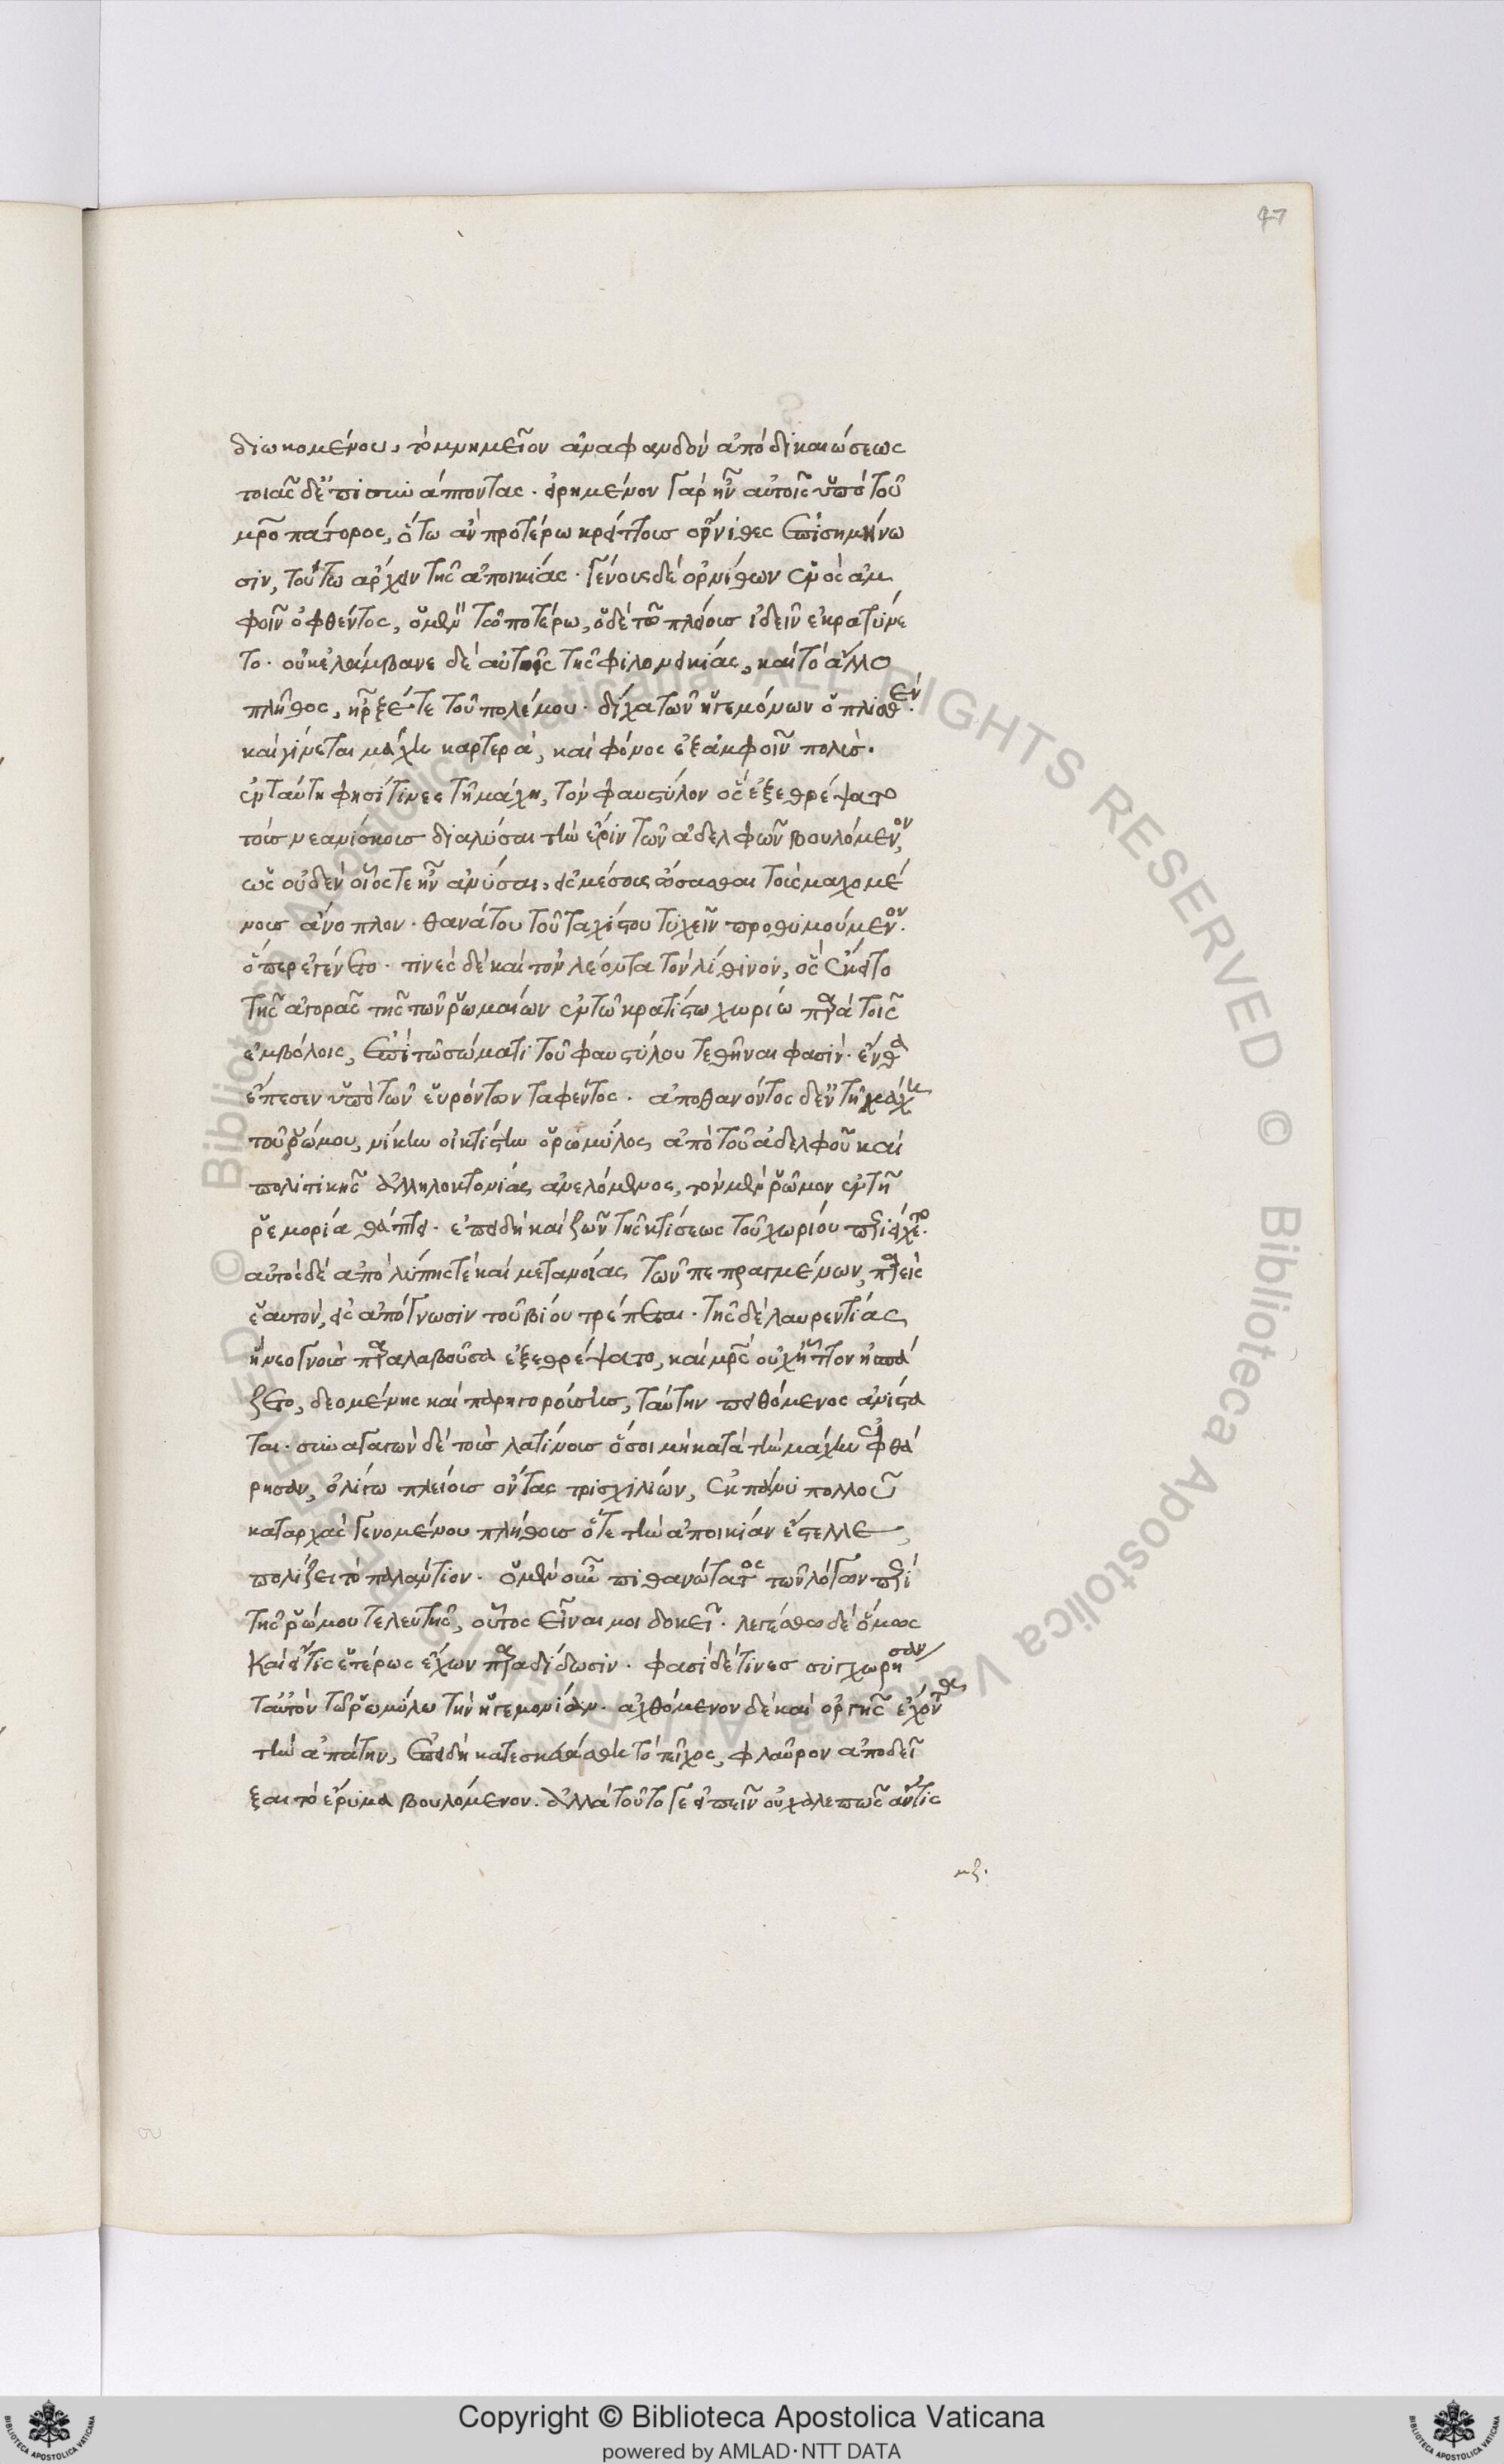 47
διωκομένου, τὸ μνημεῖον ἀναφανδὸν ἀπὸ δικαιώσεως
τοιᾶς δέ πι συνάπτοντας. εἰρημένον γὰρ ἦν αὐτοῖς ὑπὸ τοῦ
μροπάτορος, ὅτω ἂν προτέρω κρείττους ὄρνιθες ἐπισημήνω
σιν, τούτω ἄρχειν τῆς ἀποικίας. γένους δὲ ὀρνίθων ἑνὸς ἀμ
φοῖν ὀφθέντος, ὁ μὲν τῶ ποτέρω, ὁ δὲ τῶ πλείους ἰδεῖν ἐκρατύνε
το. συνελάμβανε δὲ αὐτοῖς τῆς φιλονεικίας, καὶ τὸ ἄλλο
πλῆθος, ἦρξέ τε τοῦ πολέμου. δίχα τῶν ἡγεμόνων ὁπλισθέν.
καὶ γίνεται μάχη καρτερὰ, καὶ φόνος ἐξ ἀμφοῖν πολύς.
ἐν ταύτη φησί τινες τῆ μάχη, τὸν φαυστύλον ὃς ἐξεθρέψατο
τοὺς νεανίσκους διαλῦσαι τὴν ἔριν τῶν ἀδελφῶν βουλόμενον,
ὡς οὐδὲν οἷός τε ἦν ἀνύσαι, εἰς μέσους ὤσασθαι τοὺς μαχομέ
νους ἄνοπλον. θανάτου τοῦ ταχίστου τυχεῖν προθυμούμενον.
ὅπερ ἐγένετο. τινὲς δὲ καὶ τὸν λέοντα τὸν λίθινον, ὃς ἔκειτο
τῆς ἀγορᾶς τῆς τῶν ῥωμαίων ἐν τῶ κρατίστω χωρίω παρὰ τοῖς
ἐμβόλοις, ἐπὶ τῶ σώματι τοῦ φαυστύλου τεθῆναι φασίν. ἔνθα
ἔπεσεν ὑπὸ τῶν εὑρόντων ταφέντος. ἀποθανόντος δ' ἐν τῆ μάχη
τοῦ ῥώμου, νίκην οἰκτίστην ὁ ῥωμύλος ἀπὸ τοῦ ἀδελφοῦ καὶ
πολιτικῆς ἀλληλοκτονίας ἀνελόμενος, τὸν μὲν ῥῶμον ἐν τῆ
ῥεμορία θάπτει. ἐπειδὴ καὶ ζῶν τῆς κτίσεως τοῦ χωρίου περιείχετο.
αὐτὸς δὲ ἀπὸ λύπης τὲ καὶ μετανοίας τῶν πεπραγμένων, παρεὶς
ἑαυτὸν, εἰς ἀπόγνωσιν τοῦ βίου τρέπεται. τῆς δὲ λαυρεντίας
ἣ νεογνοὺς παραλαβοῦσα ἐξεθρέψατο, καὶ μρς οὐχ ἧττον ἠσπά
ζετο, δεομένης καὶ παρηγορούσης, ταύτην πειθόμενος ἀνίστα
ται. συναγαγὼν δὲ τοὺς λατίνους ὅσοι μὴ κατὰ τὴν μάχην ἐφθά
ρησαν, ὀλίγω πλείους ὄντας τρισχιλίων, ἐκ πάνυ πολλοῦ
καταρχὰς γενομένου πλήθους ὅτε τὴν ἀποικίαν ἔστελλε,
πολίζει τὸ παλάντιον. ὁ μὲν οὖν πιθανώτατος τῶν λόγων περὶ
τῆς ῥώμου τελευτῆς, οὗτος εἶναι μοι δοκεῖ. λεγέσθω δὲ ὅμως
καὶ εἴ τις ἑτέρως ἔχων παραδίδωσιν. φασὶ δέ τινες συγχωρήσαν
τ' αὐτὸν τῶ ῥωμύλω τὴν ἡγεμονίαν. ἀχθόμενον δὲ καὶ ὀργῆς ἔχοντα
τὴν ἀπάτην, ἐπειδὴ κατεσκευάσθη τὸ τεῖχος, φλαῦρον ἀποδεῖ
ξαι τὸ ἔρυμα βουλόμενον. ἀλλὰ τοῦτό γε εἰπεῖν οὐ χαλεπῶς ἄν τις
μζ.
Copyright © Biblioteca Apostolica Vaticana
powered by AMLAD·NTT DATA